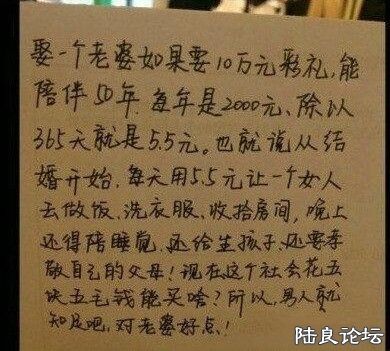 娶一个老婆如果要10万元彩礼,能
陪伴50年.每年是2000元、除以
365天就是5.5元。也就说从结
婚开始.每天用5.5元让一个女人
去做饭、洗衣服、收拾房间,晚上
还得陪睡觉.还给生孩子.还要孝
敬自己的父母!现在这个社会花五
块五毛钱能买啥?所以,男人就
知足吧,对老婆好点!
陆良论坛